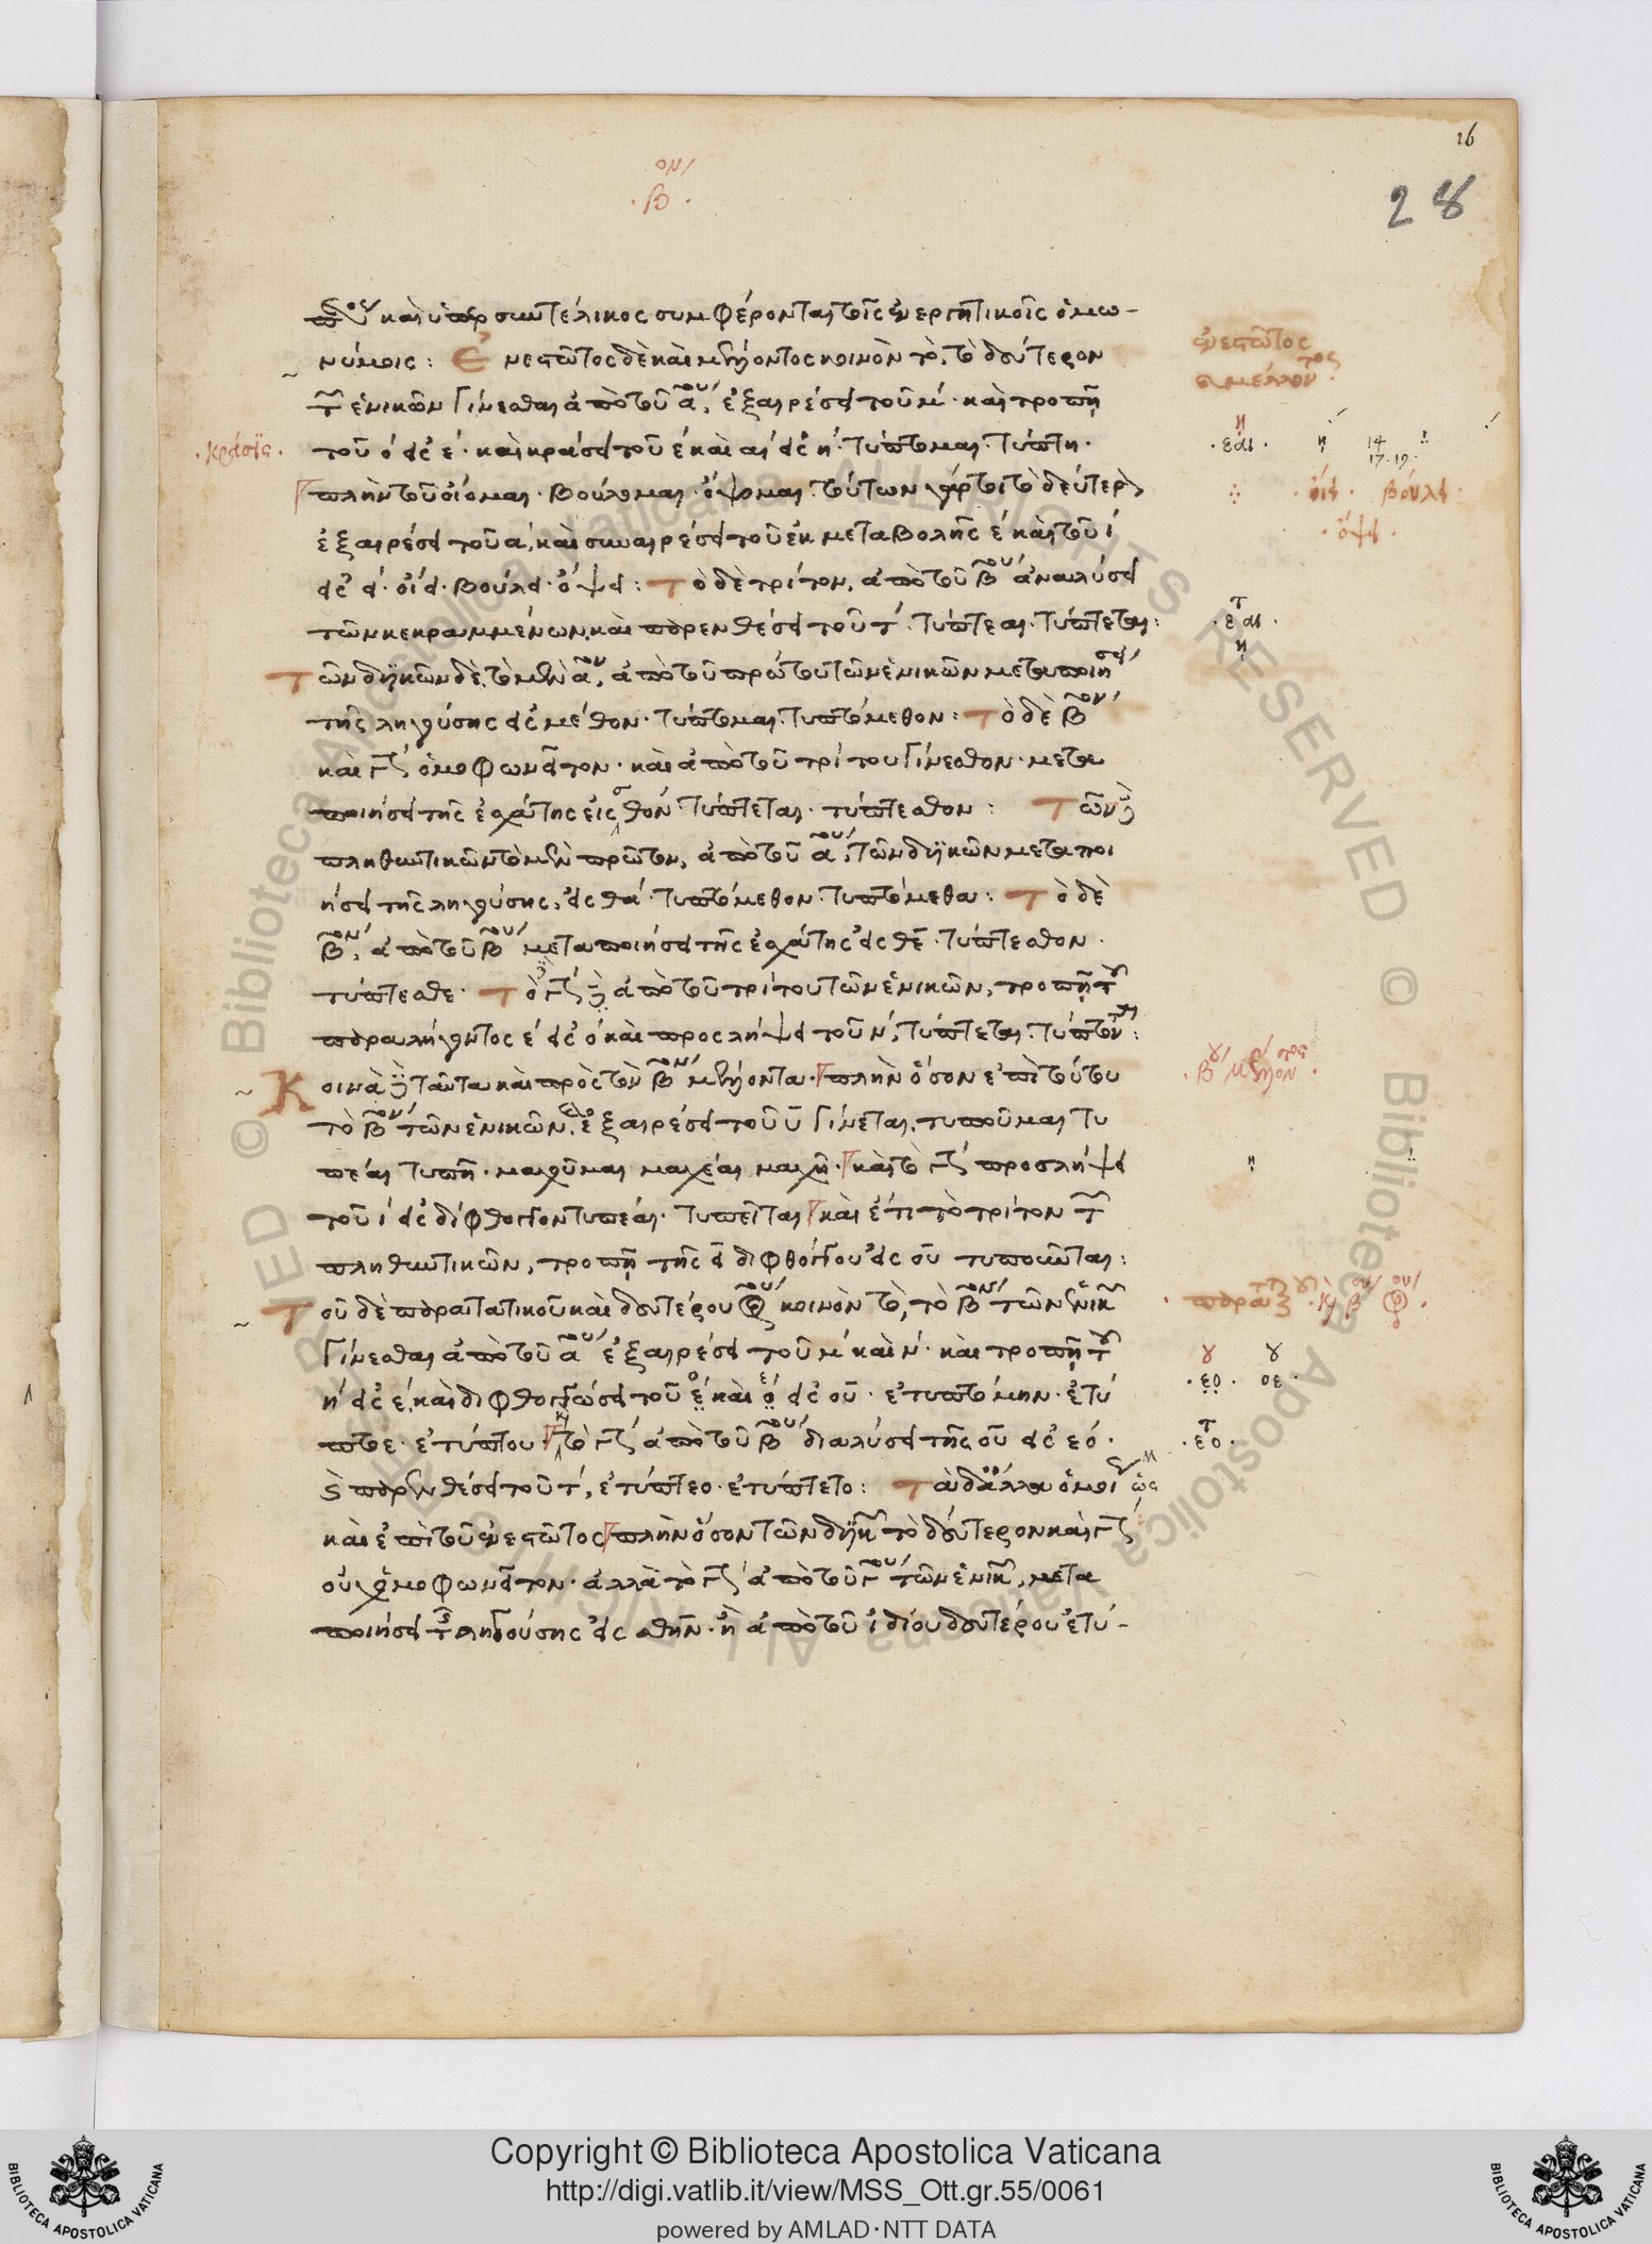 16
28
ον
·β·
καὶ ὑπερσυντέλικος συμφέρονται τοῖς ἐνεργητικοῖς ὁμω-
νύμοις: Ἐνεστῶτος δὲ καὶ μέλλοντος κοινὸν τὸ, τὸ δεύτερον
ἐνεστῶτος
μέλλοντος
τῶν ἑνικῶν γίνεσθαι ἀπὸ τοῦ αου, ἐξαιρέσει τοῦ μ· καὶ τροπῇ
·κράσις·
τοῦ ό εἰς έ· καὶ κράσει τοῦ έ καὶ αι εἰς ή· τύπτομαι· τύπτη·
η
·εαι· η
πλὴν τοῦ οἴομαι· βούλομαι· ὄψομαι· τούτων γάρ τοι τὸ δεύτερον
οἴει· βούλει·
ἐξαιρέσει τοῦ α, καὶ συναιρέσει τοῦ ἐκ μεταβολῆς έ καὶ τοῦ ί
·ὄψει·
εἰς ει· οἴει· βούλει· ὄψει: Τὸ δὲ τρίτον, ἀπὸ τοῦ βου ἀναλύσει
τῶν κεκραμμένων, καὶ παρενθέσει τοῦ τ· τύπτεαι· τύπτεται:
τ
·εαι·
η
Τῶν δυϊκῶν δὲ, τὸ μὲν αον, ἀπὸ τοῦ πρώτου τῶν ἑνικῶν μεταποιήσει
τῆς ληγούσης εἰς μέθον· τύπτομαι· τυπτόμεθον: Τὸ δὲ βον
καὶ γον ὁμοφωνεῖτον· καὶ ἀπὸ τοῦ τρίτου γίνεσθον· μετα
ποιήσει τῆς ἐσχάτης εἰς σθον· τύπτεται· τύπτεσθον: Τῶν δὲ
πληθυντικῶν τὸ μὲν πρῶτον, ἀπὸ τοῦ αου, τῶν δυϊκῶν μεταποι
ήσει τῆς ληγούσης, εἰς θα· τυπτόμεθον· τυπτόμεθα: Τὸ δὲ
βον, ἀπὸ τοῦ βου μεταποιήσει τῆς ἐσχάτης εἰς θε· τύπτεσθον·
τύπτεσθε· Τὸ γον δὲ ἀπὸ τοῦ τρίτου τῶν ἑνικῶν, τροπῇ τοῦ
παραλήγοντος έ εἰς ό καὶ προσλήψει τοῦ ν, τύπτεται· τύπτονται:
Κοινὰ δὲ ταῦτα καὶ πρὸς τὸν βον μέλλοντα· πλὴν ὅσον ἐπὶ τούτου
·βου μέλλοντος·
τὸ βον τῶν ἑνικῶν, ἐξαιρέσει τοῦ υ γίνεται, τυποῦμαι τυ
πέαι τυπῇ· μαχοῦμαι μαχέαι μαχῇ· καὶ τὸ γον προσλήψει
τοῦ ί εἰς δίφθογγον τυπέαι· τυπεῖται καὶ ἔτι τὸ τρίτον τῶν
πληθυντικῶν, τροπῇ τῆς ει διφθόγγου εἰς ου τυποῦνται:
Τοῦ δὲ παρατατικοῦ καὶ δευτέρου κοινὸν τὸ, τὸ βον τῶν ἑνικῶν
γίνεσθαι ἀπὸ τοῦ αου ἐξαιρέσει τοῦ μ καὶ ν· καὶ τροπῇ τοῦ
ή εἰς έ, καὶ διφθογγώσει τοῦ έ καὶ ό εἰς ου· ἐτυπτόμην· ἐτύ
·εο· οε·
πτοε· ἐτύπτου καὶ τὸ γον ἀπὸ τοῦ βου διαλύσει τῆς ου εἰς εό·
τ
·εο·
καὶ παρενθέσει τοῦ τ, ἐτύπτεο· ἐτύπτετο: Τὰ δὲ ἄλλα ὅμοια ὡς
καὶ ἐπὶ τοῦ ἐνεστῶτος πλὴν ὅσον τῶν δυϊκῶν τὸ δεύτερον καὶ γον
οὐχ ὁμοφωνεῖτον· ἀλλὰ τὸ γον ἀπὸ τοῦ γου τῶν ἑνικῶν, μετα
ποιήσει τῆς ληγούσης εἰς σθην· ἢ ἀπὸ τοῦ ἰδίου δευτέρου ἐτύ-
Copyright © Biblioteca Apostolica Vaticana
http://digi.vatlib.it/view/MSS_Ott.gr.55/0061
powered by AMLAD·NTT DATA
BIBLIOTECA APOSTOLICA VATICANA
BIBLIOTECA APOSTOLICA VATICANA